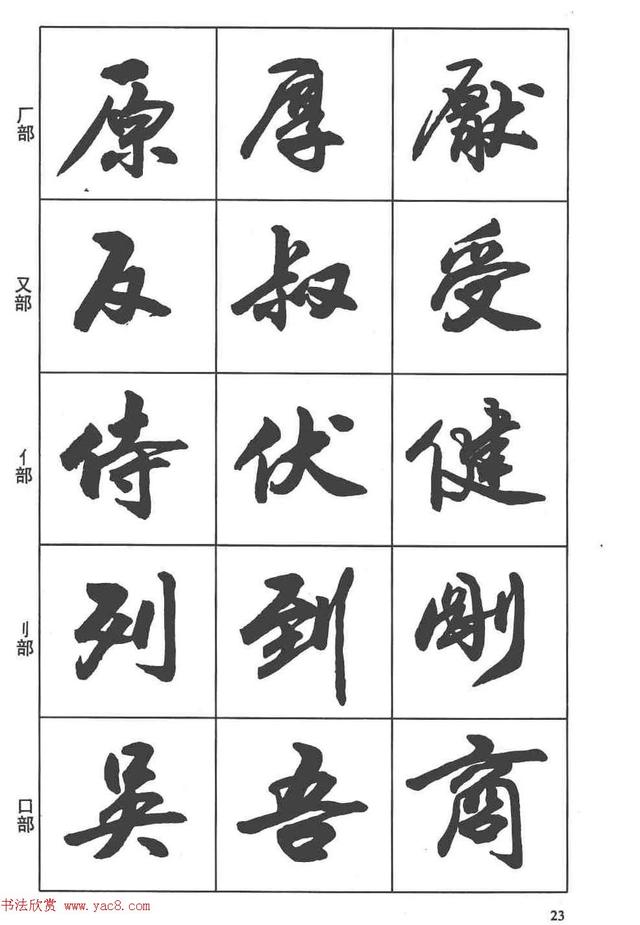 厂部 原 厚 厭
又部 反 叔 受
亻部 侍 伏 健
刂部 列 到 剛
口部 吴 吾 商
书法欣赏 www.yac8.com
23